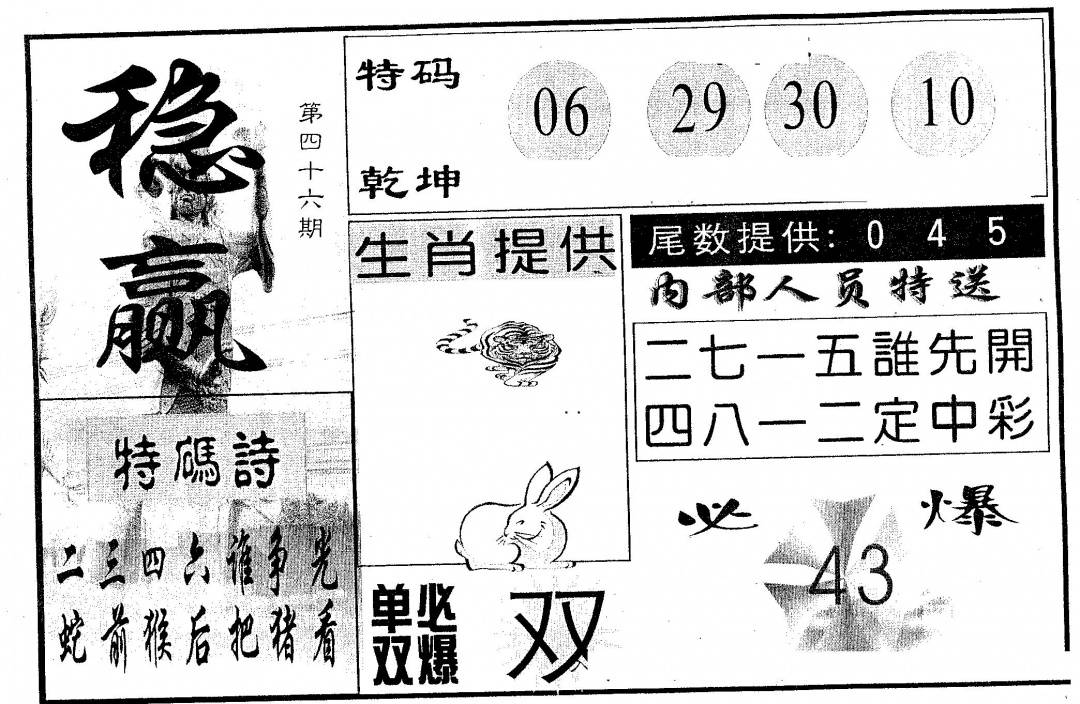 稳赢
第四十六期
特码
06 29 30 10
乾坤
生肖提供
尾数提供: 0 4 5
内部人员特送
二七一五誰先開
四八一二定中彩
特碼詩
二三四六谁争光
蛇前猴后把猪看
必爆
43
单双必爆
双